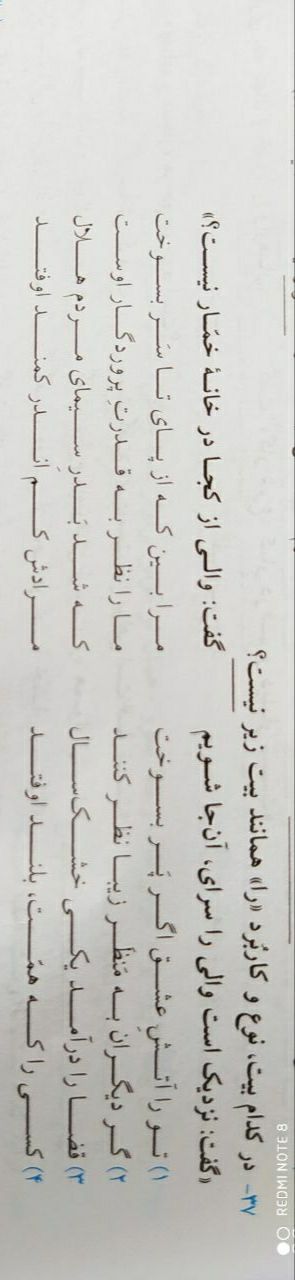 ۳۷- در کدام بیت، نوع و کاربرد «را» همانند بیت زیر نیست؟
«گفت: نزدیک است والی را سرای، آن‌جا شویم گفت: والی از کجا در خانهٔ خمّار نیست؟»
۱) تو را آتش عشق اگر پَر بسوخت مرا بین که از پای تا سَر بسوخت
۲) گر دیگران به مَنظَر زیبا نظر کنند ما را نظر به قدرتِ پروردگار اوست
۳) قضا را درآمد یکی خشک‌سال که شد بَدرِ سیمای مردم هلال
۴) کسی را که همّت، بلند اوفتد مرادش کم اندر کمند اوفتد
REDMI NOTE 8